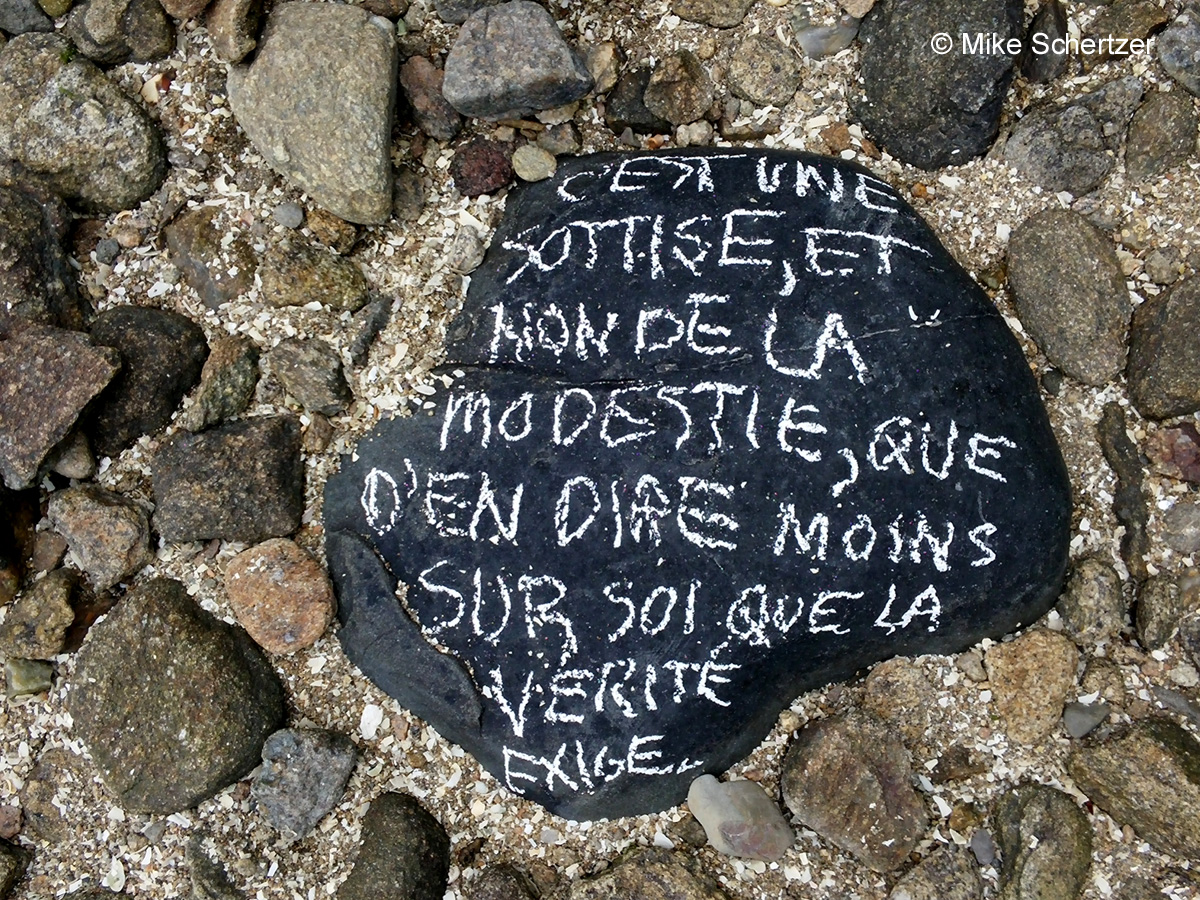 © Mike Schertzer
C'EST UNE
SOTTISE, ET
NON DE LA
MODESTIE, QUE
D'EN DIRE MOINS
SUR SOI QUE LA
VÉRITÉ
EXIGE.